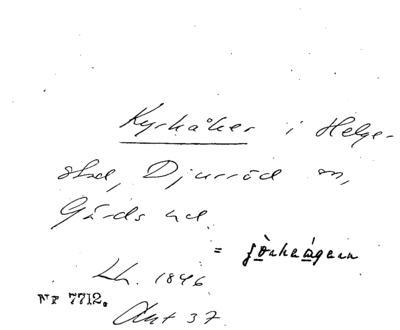 Kyrkåker i Helge-
stad, Djurröd sn,
Gärds hd.
Lh. 1846
Nr 7712.
Akt 37.